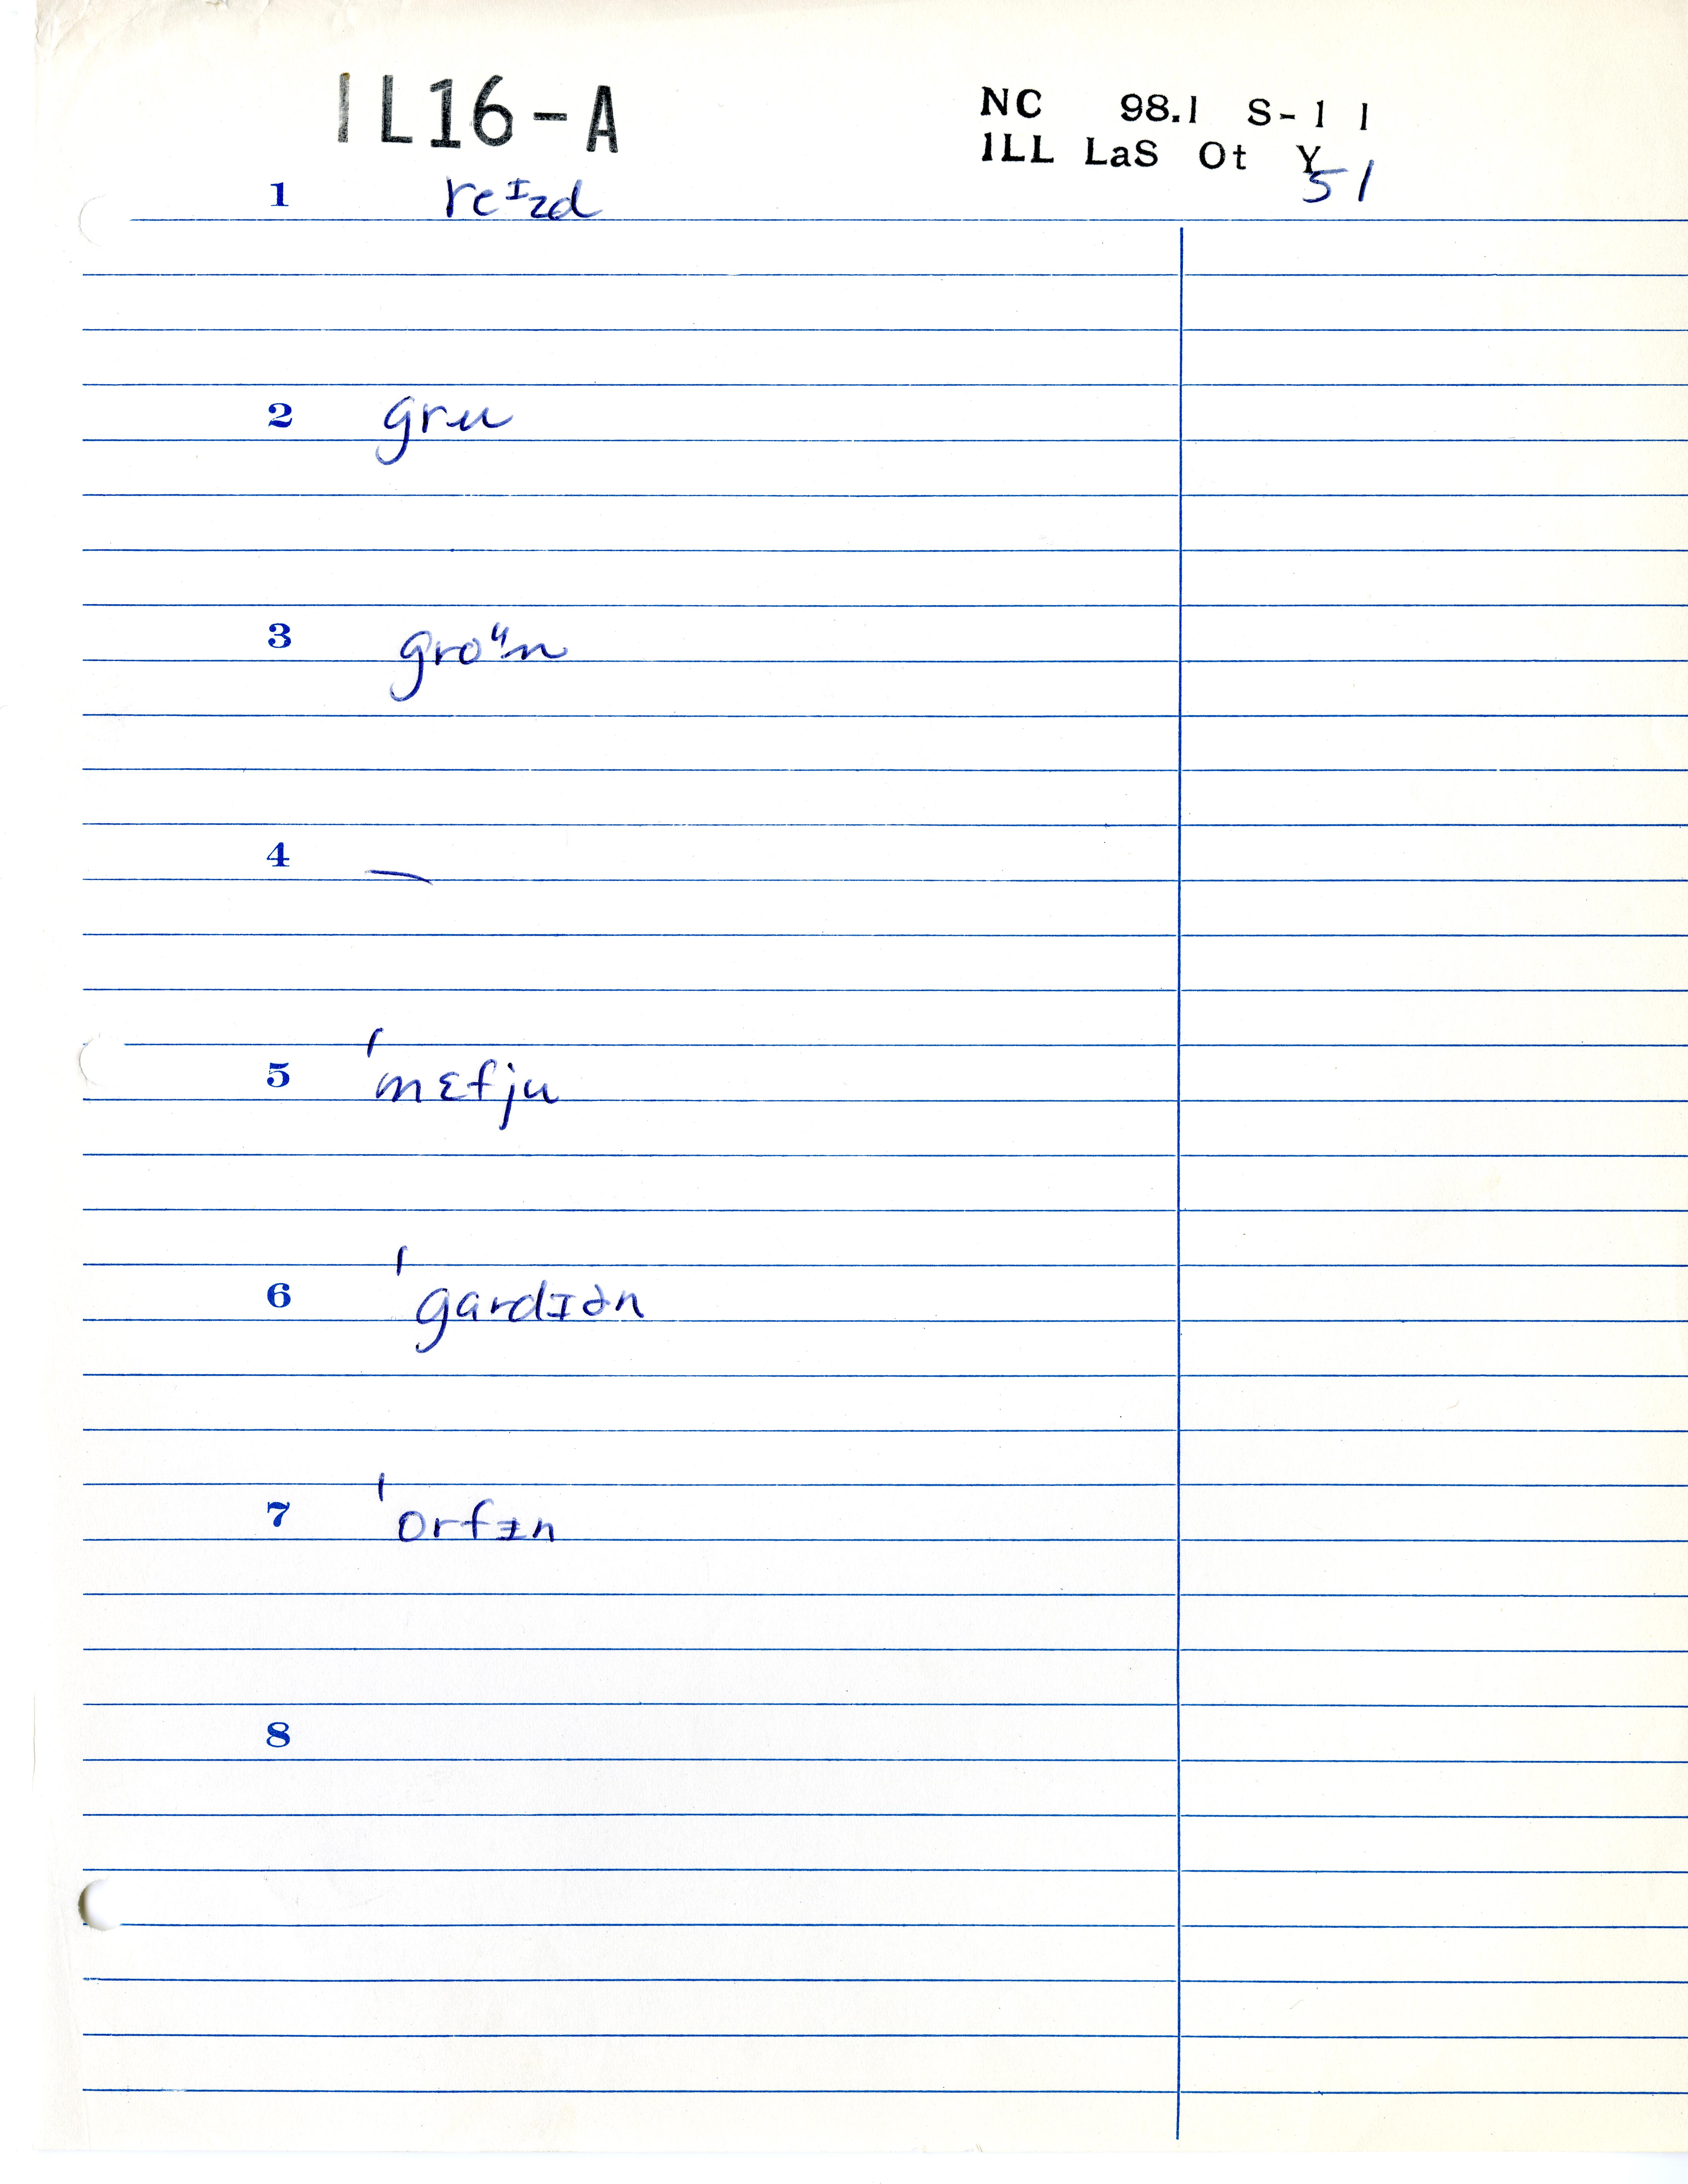 IL16-A
NC 98.1 S-11
ILL LaS Ot Y
51
1 reᴵzd
2 gru
3 groᵘn
4 —
5 ˈmɛfju
6 ˈgardɪən
7 ˈorfɨn
8